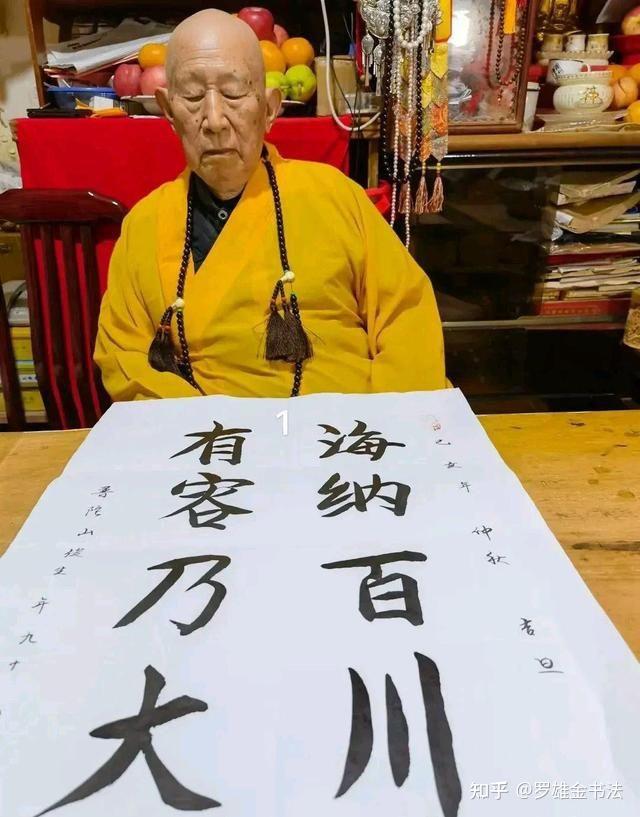 己亥年 仲秋 吉旦
海纳百川
有容乃大
普陀山 生 年九十
1
知乎 @罗雄金书法